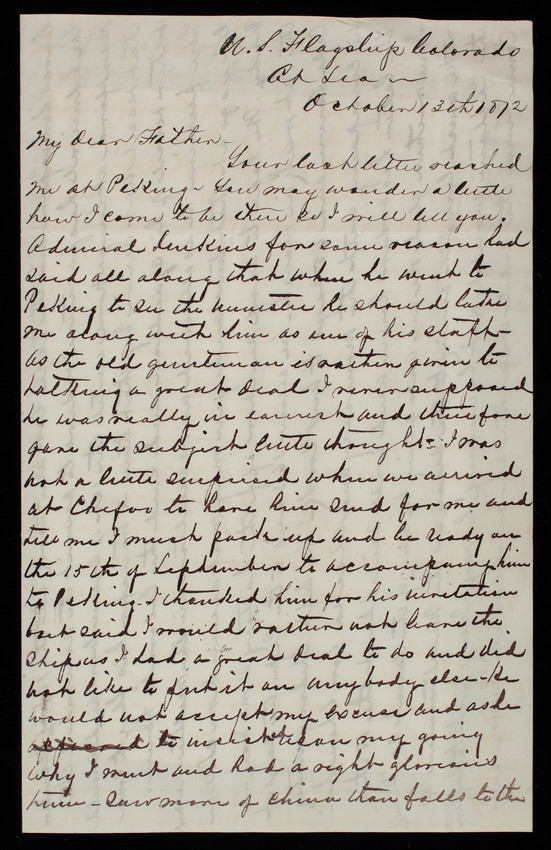 U. S. Flagship Colorado
At Sea —
October 13th 1872
My Dear Father –
Your last letter reached
me at Peking – You may wonder a little
how I came to be there so I will tell you.
Admiral Jenkins for some reason had
said all along that when he went to
Peking to see the minister he should take
me along with him as one of his staff –
as the old gentleman is rather given to
talking a great deal I never supposed
he was really in earnest and therefore
gave the subject little thought – I was
not a little surprised when we arrived
at Chefoo to have him send for me and
tell me I must pack up and be ready on
the 15th of September to accompany him
to Peking – I thanked him for his invitation
but said I would rather not leave the
ship as I had a great deal to do and did
not like to put it on anybody else – he
would not accept my excuse and as he
to insisted upon my going
why I went and had a right glorious
time – saw more of China than falls to the